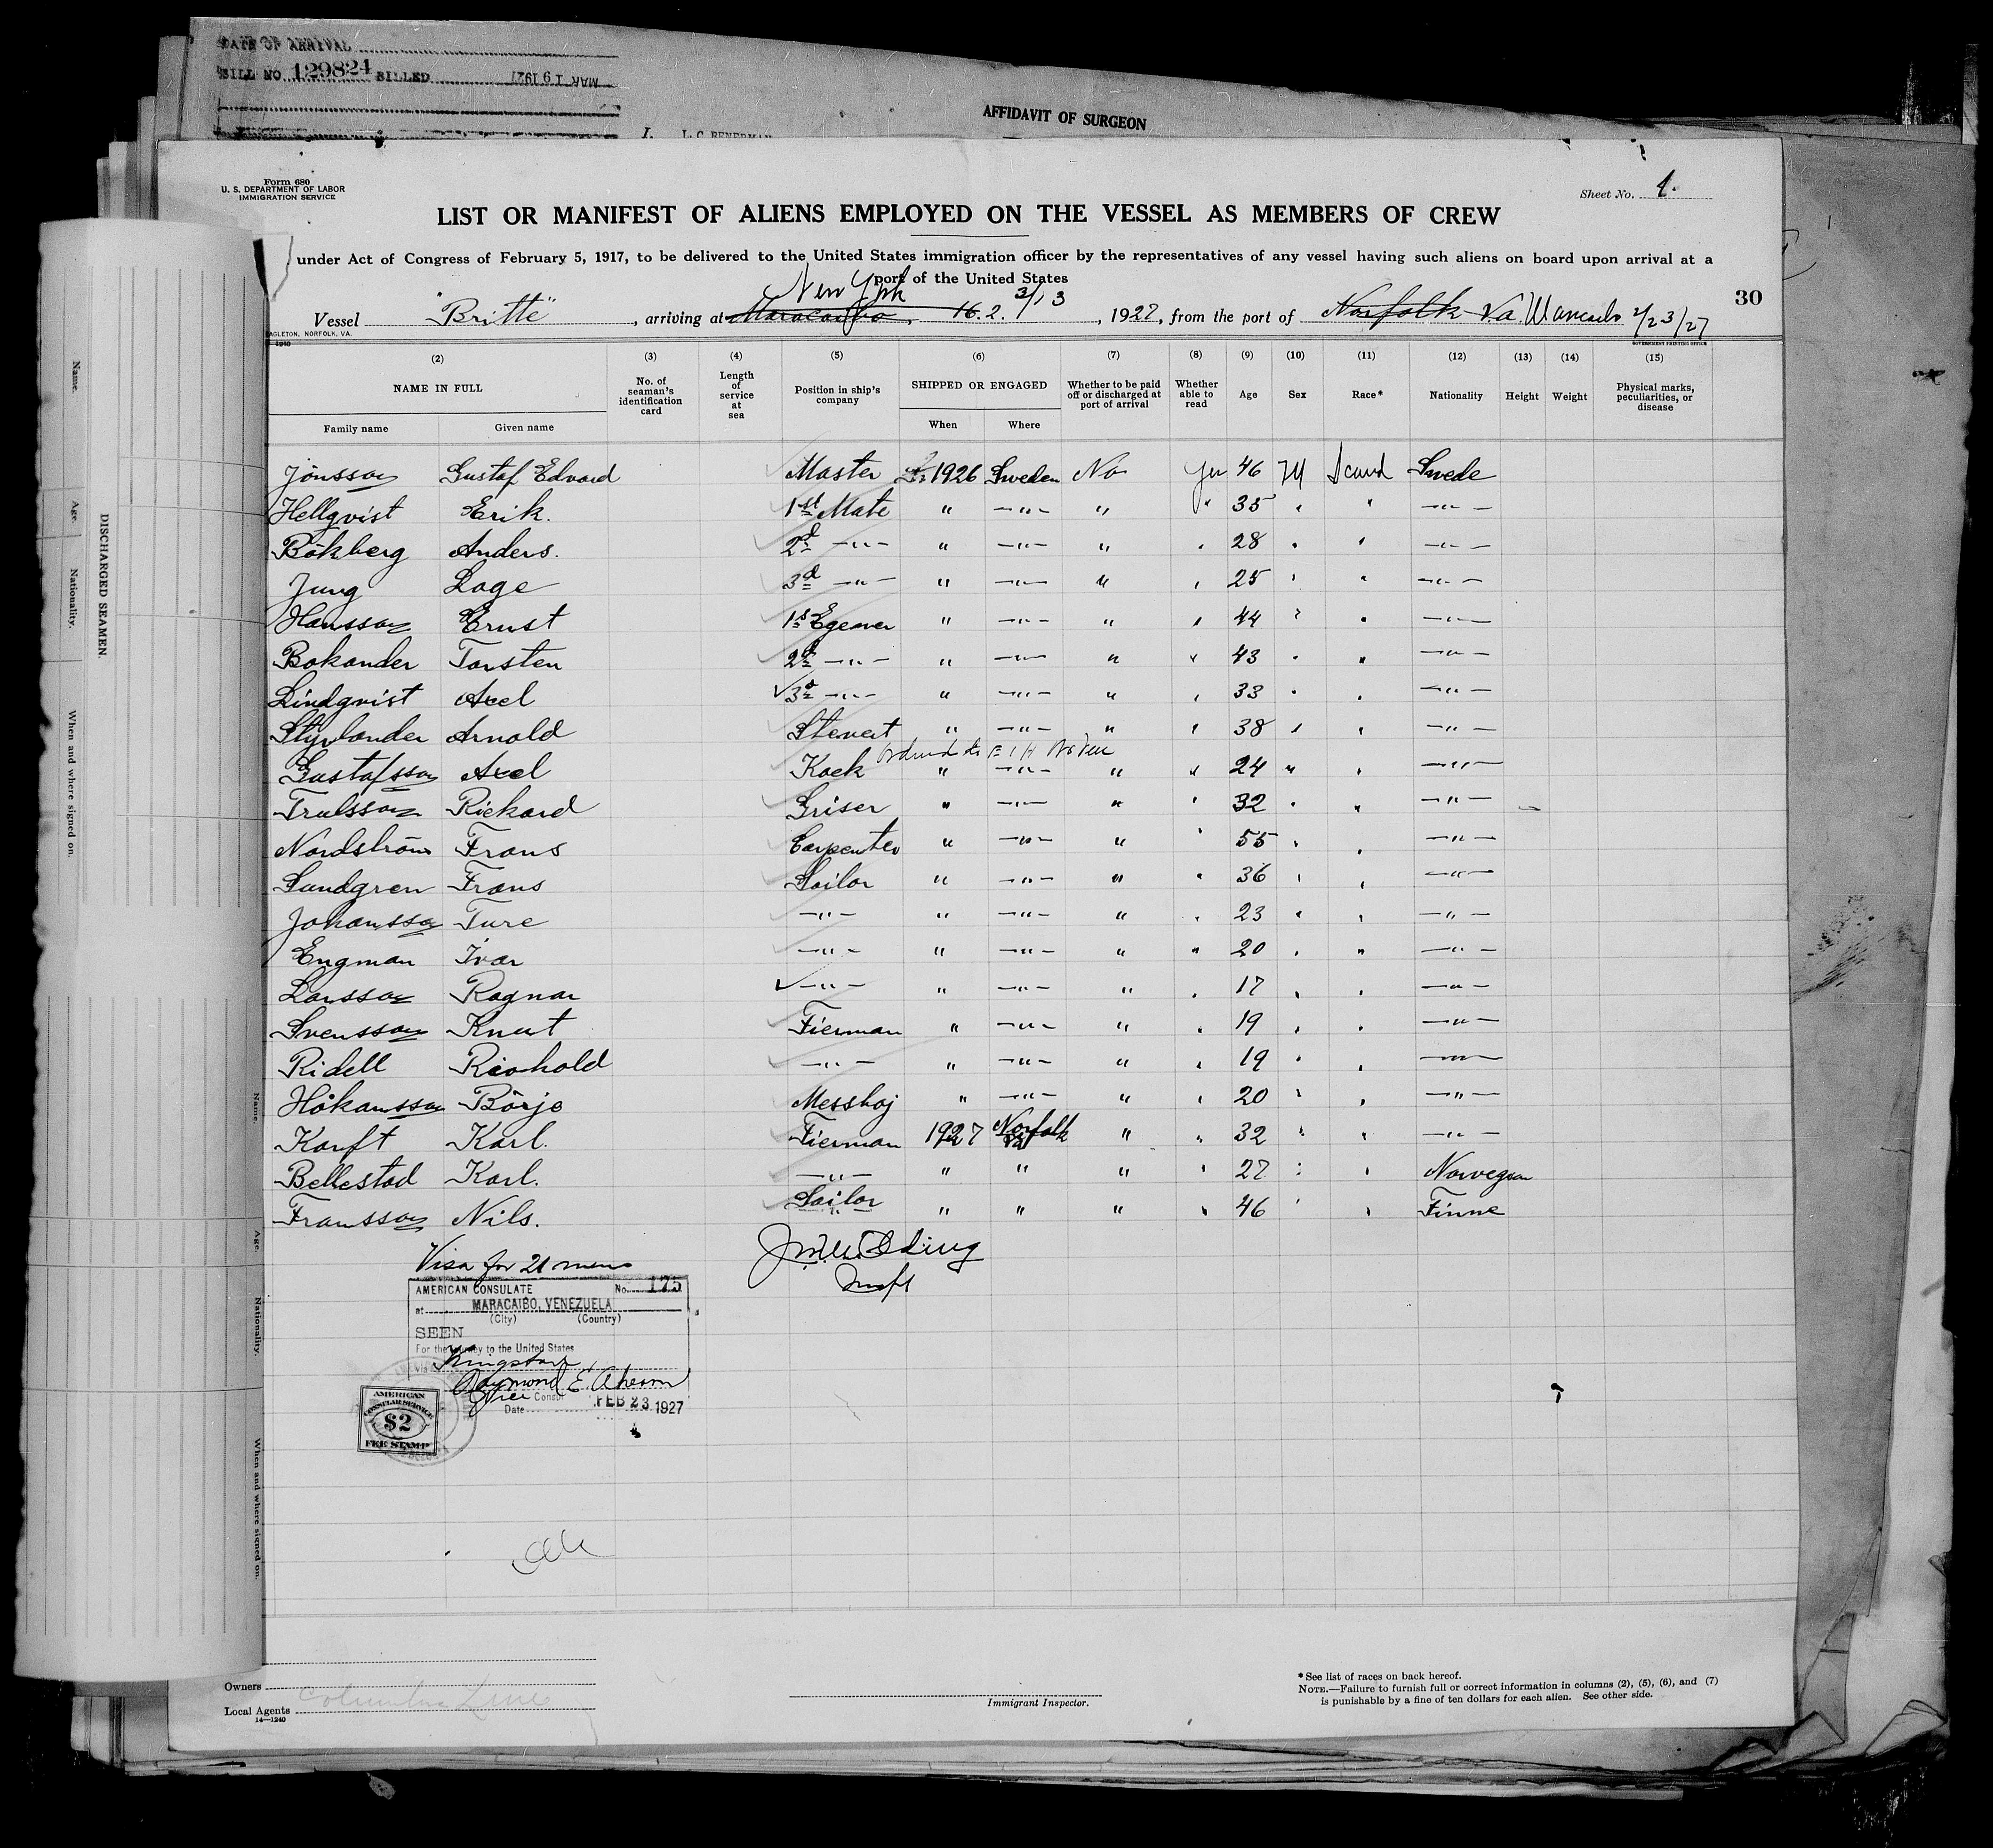 DATE OF ARRIVAL
BILL NO 129824 BILLED MAR 19 1927
AFFIDAVIT OF SURGEON
I, L. C. BENERMAN
Form 680
U. S. DEPARTMENT OF LABOR
IMMIGRATION SERVICE
Sheet No. 1.
LIST OR MANIFEST OF ALIENS EMPLOYED ON THE VESSEL AS MEMBERS OF CREW
under Act of Congress of February 5, 1917, to be delivered to the United States immigration officer by the representatives of any vessel having such aliens on board upon arrival at a
port of the United States
New York 3/13
Vessel "Britte", arriving at Maracaibo, 16. 2., 1927, from the port of Norfolk Va. Maracaibo 2/23/27
30
EAGLETON, NORFOLK, VA.
1240
GOVERNMENT PRINTING OFFICE
(2) (3) (4) (5) (6) (7) (8) (9) (10) (11) (12) (13) (14) (15)
NAME IN FULL No. of seaman's identification card Length of service at sea Position in ship's company SHIPPED OR ENGAGED Whether to be paid off or discharged at port of arrival Whether able to read Age Sex Race* Nationality Height Weight Physical marks, peculiarities, or disease
Family name Given name When Where
Jönsson Gustaf Edvard Master 1926 Sweden No yes 46 M Scand Swede
Hellqvist Erik. 1st Mate " —"— " " 35 " " —"—
Bökberg Anders. 2d —"— " —"— " " 28 " " —"—
Jung Loge 3d —"— " —"— " " 25 " " —"—
Hansson Ernst 1s Egener " —"— " " 44 " " —"—
Bokander Torsten 2d —"— " —"— " " 43 " " —"—
Lindqvist Axel 3d —"— " —"— " " 33 " " —"—
Styrlander Arnold Stevert " —"— " " 38 " " —"—
Gustafsson Axel Kock " —"— " " 24 " " —"—
Trulsson Rickard Griser " —"— " " 32 " " —"—
Nordström Frans Carpenter " —"— " " 55 " " —"—
Sundgren Frans Sailor " —"— " " 36 " " —"—
Johansson Ture —"— " —"— " " 23 " " —"—
Engman Ivar —"— " —"— " " 20 " " —"—
Larsson Ragnar —"— " —"— " " 17 " " —"—
Svensson Knut Fierman " —"— " " 19 " " —"—
Ridell Rienhold —"— " —"— " " 19 " " —"—
Håkansson Börje Messboj " —"— " " 20 " " —"—
Korft Karl. Fierman 1927 Norfolk Va " " 32 " " —"—
Bellestad Karl. —"— " " " " 27 " " Norvegian
Fransson Nils. Sailor " " " " 46 " " Finne
Visa for 21 mens
AMERICAN CONSULATE No. 175
at MARACAIBO, VENEZUELA
(City) (Country)
SEEN
For the journey to the United States
via Kingston
Raymond E. Ahearn
Vice Consul
Date FEB 23 1927
AMERICAN
CONSULAR SERVICE
$2
FEE STAMP
Owners
Local Agents Columbus Line
14—1240
Immigrant Inspector.
*See list of races on back hereof.
NOTE.—Failure to furnish full or correct information in columns (2), (5), (6), and (7)
is punishable by a fine of ten dollars for each alien. See other side.
DISCHARGED SEAMEN.
Name. Age. Nationality. When and where signed on.
Name. Age. Nationality. When and where signed on.